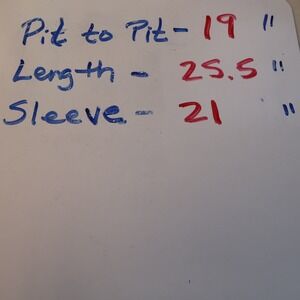 Pit to Pit - 19 "
Length - 25.5 "
Sleeve - 21 "